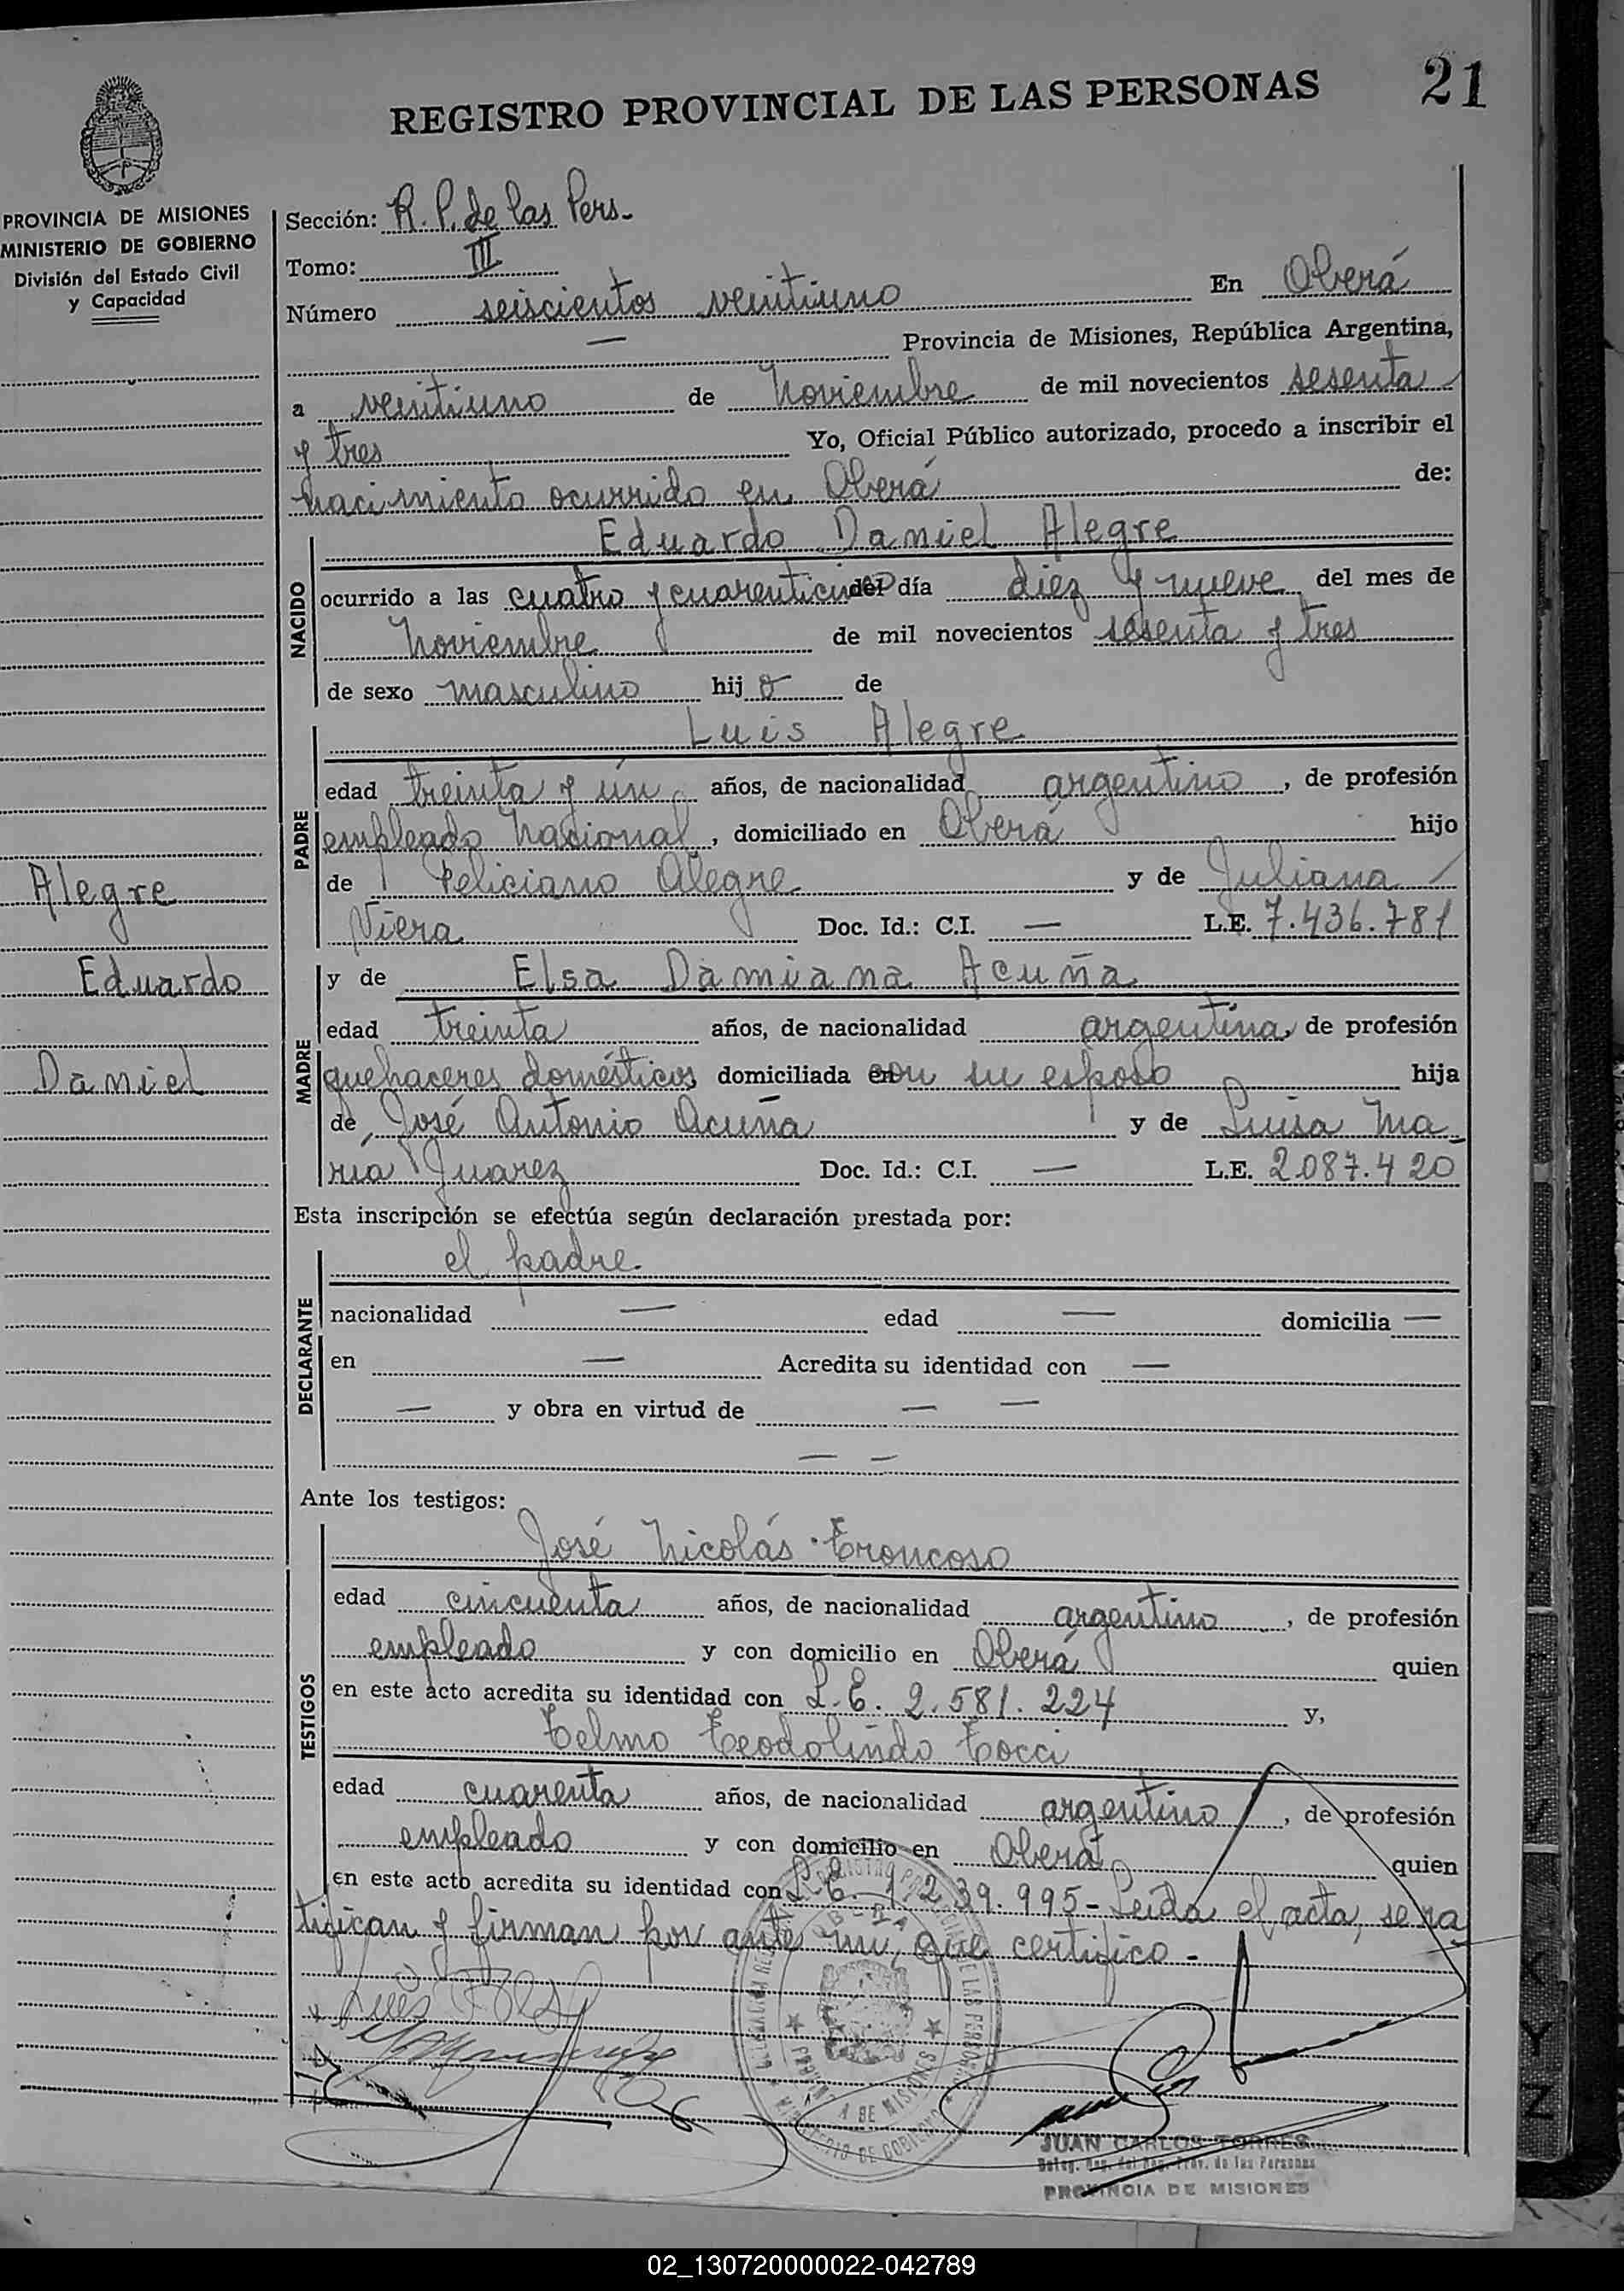 REGISTRO PROVINCIAL DE LAS PERSONAS
21
PROVINCIA DE MISIONES
MINISTERIO DE GOBIERNO
División del Estado Civil
y Capacidad
Alegre
Eduardo
Daniel
Sección: R. P. de las Pers.
Tomo: III
Número seiscientos veintiuno En Oberá
— Provincia de Misiones, República Argentina,
a veintiuno de Noviembre de mil novecientos sesenta
y tres Yo, Oficial Público autorizado, procedo a inscribir el
nacimiento ocurrido en Oberá de:
NACIDO
Eduardo Daniel Alegre
ocurrido a las cuatro y cuarenticinco del día diez y nueve del mes de
Noviembre de mil novecientos sesenta y tres
de sexo masculino hij o de
PADRE
Luis Alegre
edad treinta y ún años, de nacionalidad argentino, de profesión
empleado Nacional, domiciliado en Oberá hijo
de Feliciano Alegre y de Juliana
Viera Doc. Id.: C.I. — L.E. 7.436.781
MADRE
y de Elsa Damiana Acuña
edad treinta años, de nacionalidad argentina, de profesión
quehaceres domésticos domiciliada en con su esposo hija
de José Antonio Acuña y de Luisa Ma-
ría Juarez Doc. Id.: C.I. — L.E. 2.087.420
Esta inscripción se efectúa según declaración prestada por:
DECLARANTE
el padre.
nacionalidad — edad — domicilia —
en — Acredita su identidad con —
— y obra en virtud de — —
— —
Ante los testigos:
TESTIGOS
José Nicolás Troncoso
edad cincuenta años, de nacionalidad argentino, de profesión
empleado y con domicilio en Oberá quien
en este acto acredita su identidad con L.E. 2.581.224 y,
Telmo Teodolindo Tocci
edad cuarenta años, de nacionalidad argentino, de profesión
empleado y con domicilio en Oberá quien
en este acto acredita su identidad con L.E. 1.239.995- Leída el acta, se ra
tifican y firman por ante mí, que certifico -
Luis
JUAN CARLOS TORRES
Prov. de las Personas
PROVINCIA DE MISIONES
02_130720000022-042789